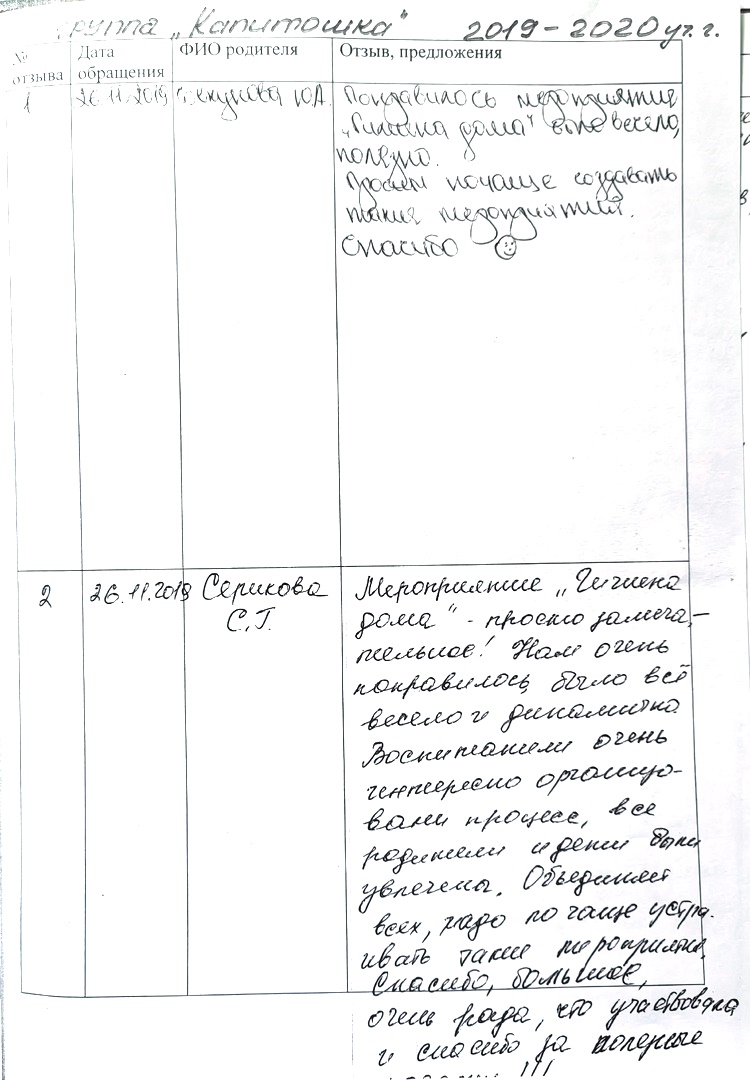 группа „Капитошка" 2019-2020 уч. г.
№ отзыва
Дата обращения
ФИО родителя
Отзыв, предложения
1
26.11.2019
Ю.А.
Понравилось мероприятия
„Гигиена дома" было весело,
полезно.
Просим почаще создавать
такия мероприятия.
Спасибо
2
26.11.2019
Серикова
С.Г.
Мероприятие „Гигиена
дома" - просто замеча-
тельное! Нам очень
понравилось, было всё
весело и динамично.
Воспитатели очень
интересно организо-
вали процесс, все
родители и дети были
увлечены. Объединяет
всех, надо почаще устра-
ивать такие мероприятия.
Спасибо, большое,
очень рада, что участвовала
и спасибо за полезные
!!!